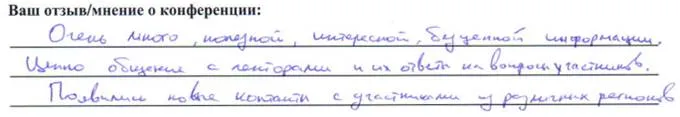 Ваш отзыв/мнение о конференции:
Очень много, полезной, интересной, бесценной информации.
Ценно общение с лекторами и их ответы на вопросы участников.
Появились новые контакты с участниками из различных регионов